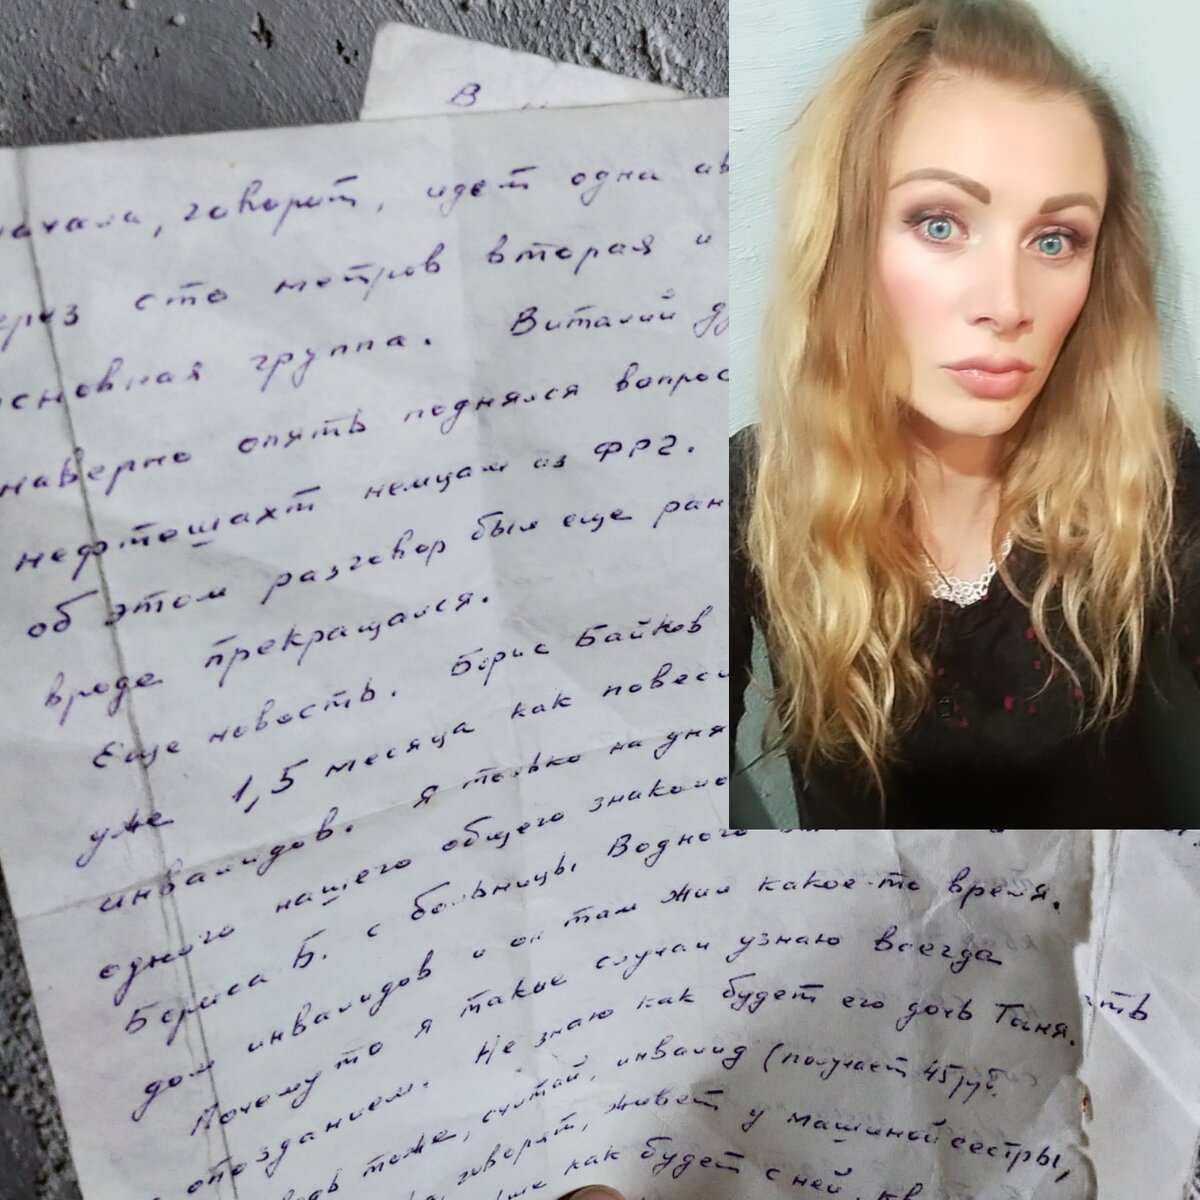 В
начала, говорит, идет одна ав
через сто метров вторая и
основная группа. Виталий ду
наверно опять поднялся вопрос
нефтешахт немцам из ФРГ.
об этом разговор был еще ран
вроде прекращался.
Еще новость. Борис Байков
уже 1,5 месяца как повеси
инвалидов. Я только на дня
одного нашего общего знакомо
Бориса Б. с больницы Водного
дом инвалидов и он там жил какое-то время.
Почему то я такие случаи узнаю всегда
с опозданием. Не знаю как будет его дочь Таня.
ведь тоже, считай, инвалид (получает 45 руб.
говорят, живет у машиной сестры,
как будет с ней. кв
ть